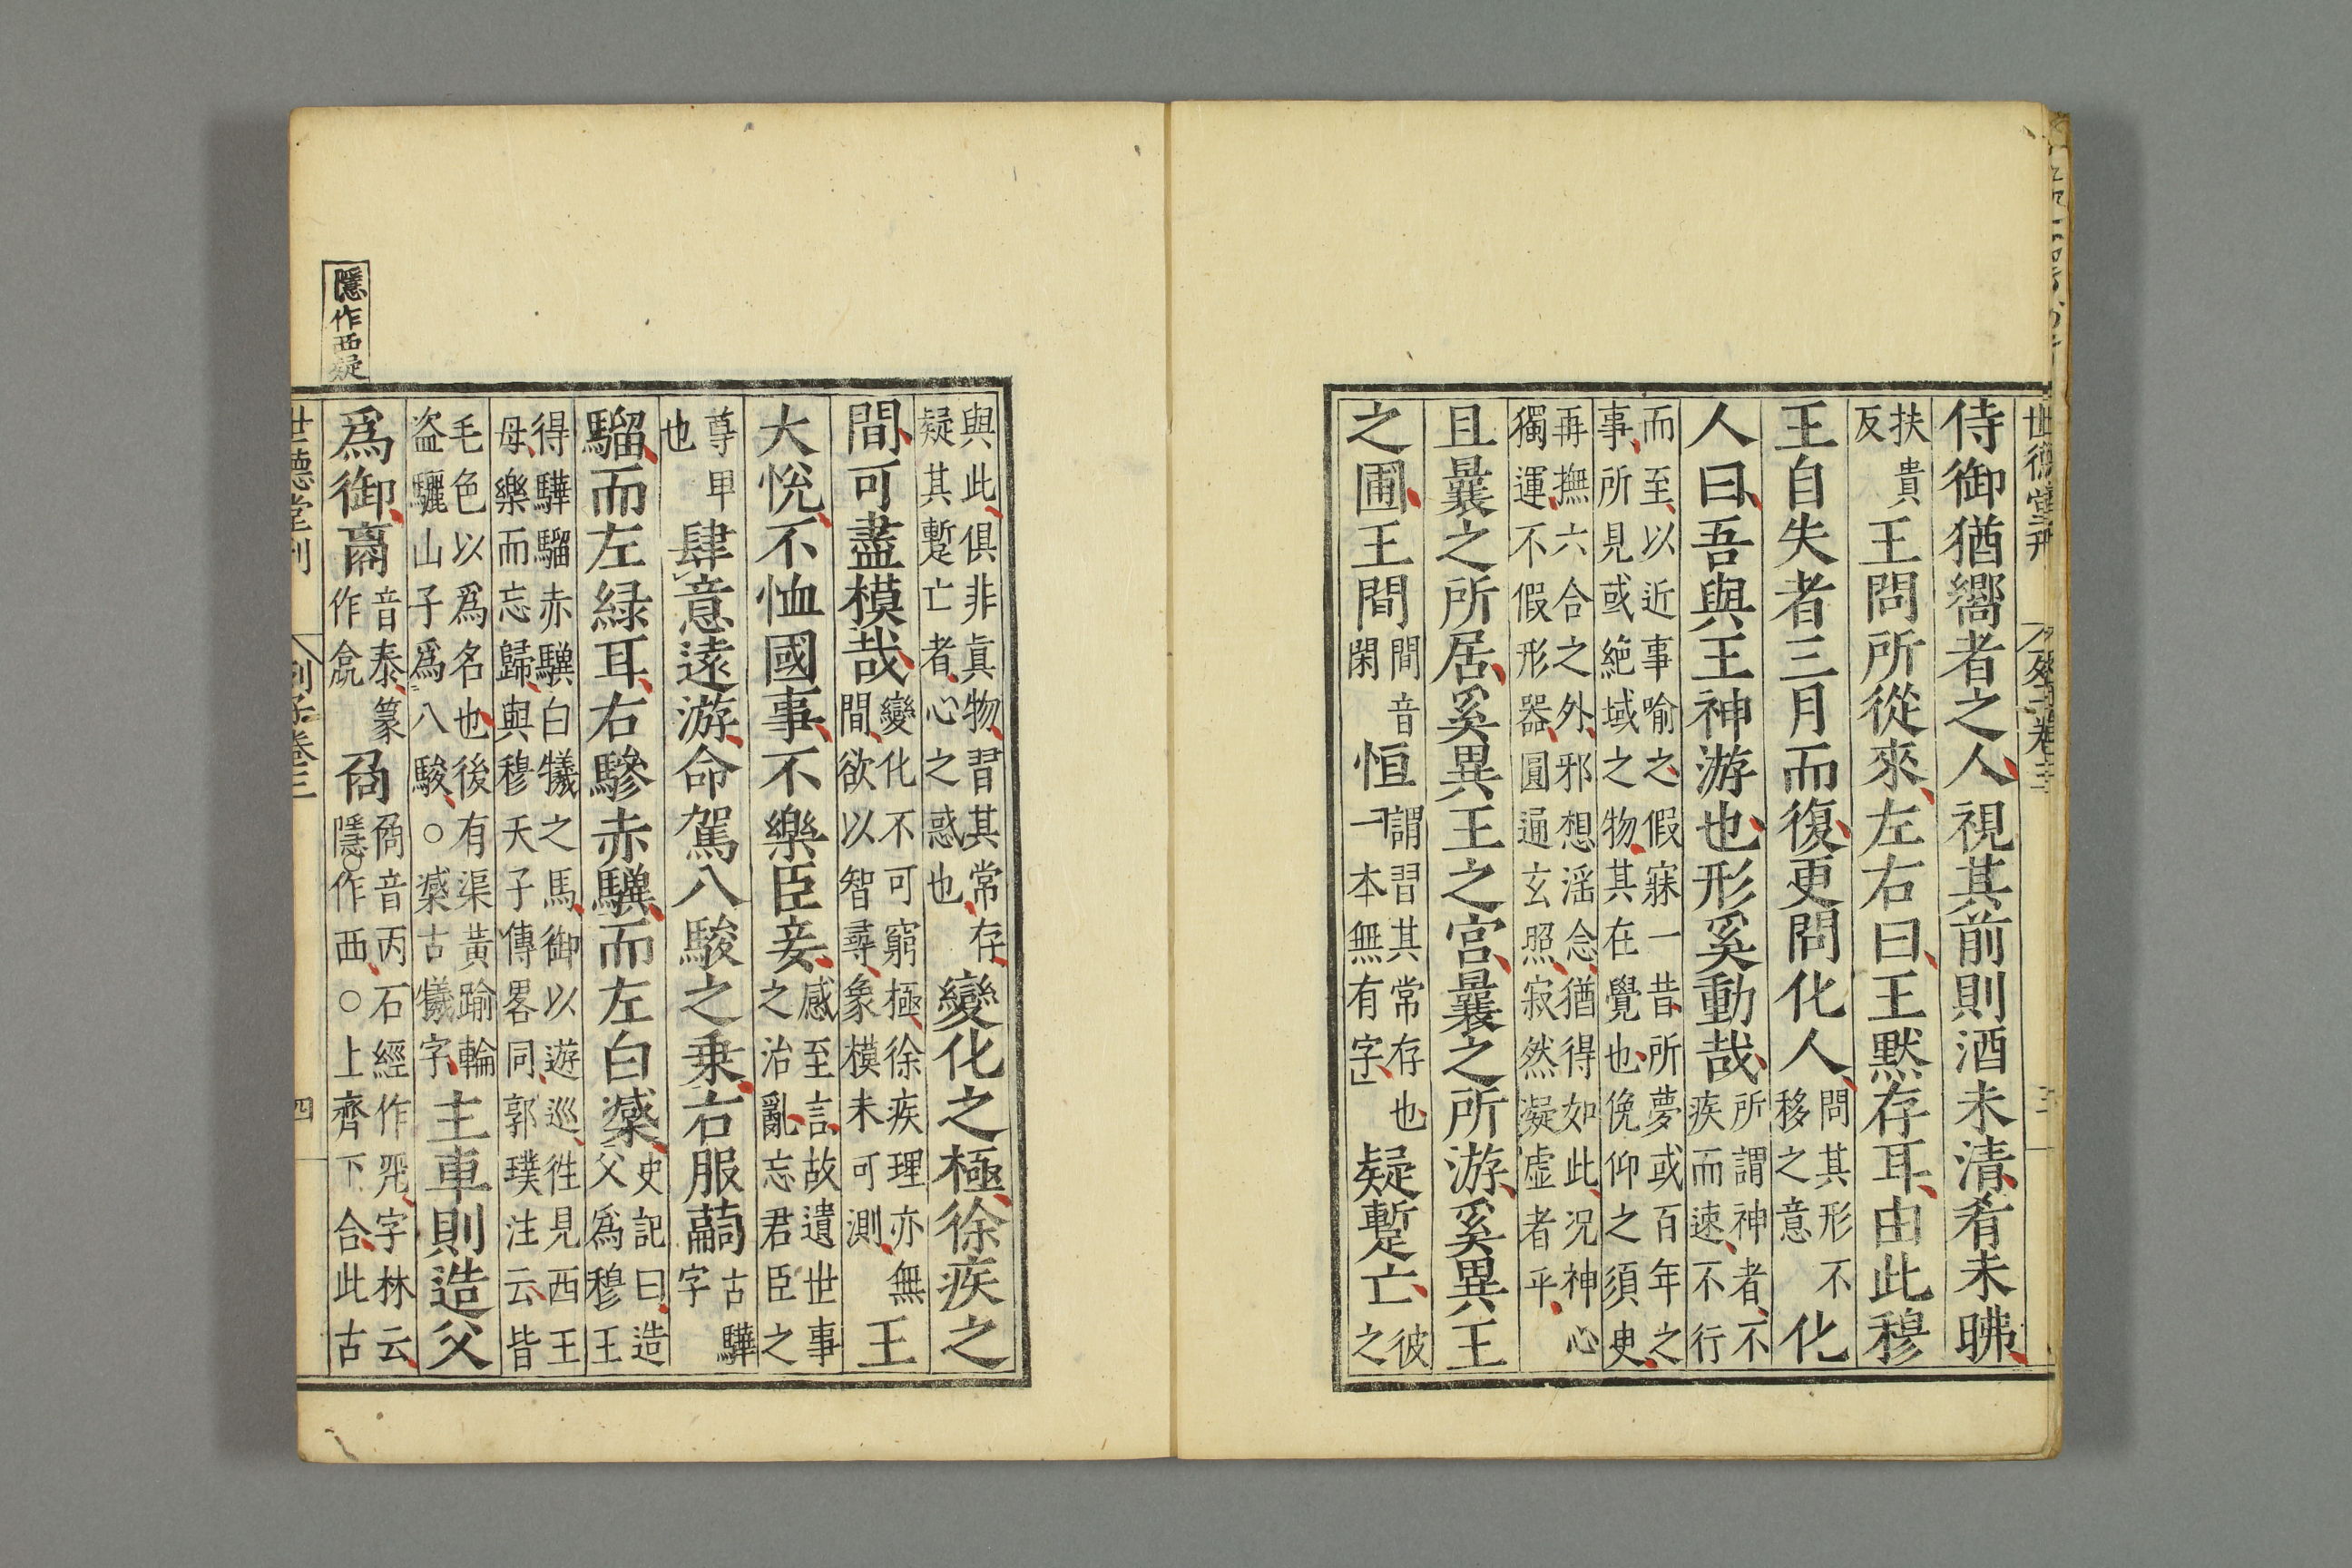 世德堂刊
列子卷三
三
侍御猶嚮者之人視其前則酒未清肴未昲
扶貴
反
王問所從來左右曰王默存耳由此穆
王自失者三月而復更問化人
問其形不
移之意
化
人曰吾與王神游也形奚動哉
所謂神者不
疾而速不行
而至以近事喻之假寐一昔所夢或百年之
事所見或絶域之物其在覺也俛仰之須臾
再撫六合之外邪想滛念猶得如此况神心
獨運不假形器圓通玄照寂然凝虚者乎
且曩之所居奚異王之宫曩之所游奚異王
之圃王間
間音
閑
恒
謂習其常存也
「一本無有字」
疑蹔亡
彼
之
與此俱非真物習其常存
疑其蹔亡者心之惑也
變化之極徐疾之
間可盡模哉
變化不可窮極徐疾理亦無
間欲以智尋象模未可測
王
大悅不恤國事不樂臣妾
感至言故遺世事
之治亂忘君臣之
尊卑
也
肆意遠游命駕八駿之乗右服𦽊
古驊
字
騮而左緑耳右驂赤驥而左白𣚦
史記曰造
父爲穆王
得驊騮赤驥白犧之馬御以遊巡徃見西王
母樂而忘歸與穆天子傳畧同郭璞注云皆
毛色以爲名也後有渠黃踰輪
盗驪山子爲八駿○𣚦古犧字
主車則造父
爲御𧯼
音泰篆
作㒶
𠲿
𠲿音丙石經作𠒇字林云
隱作西○上齊下合此古
世德堂刊
列子卷三
四
隱作西疑